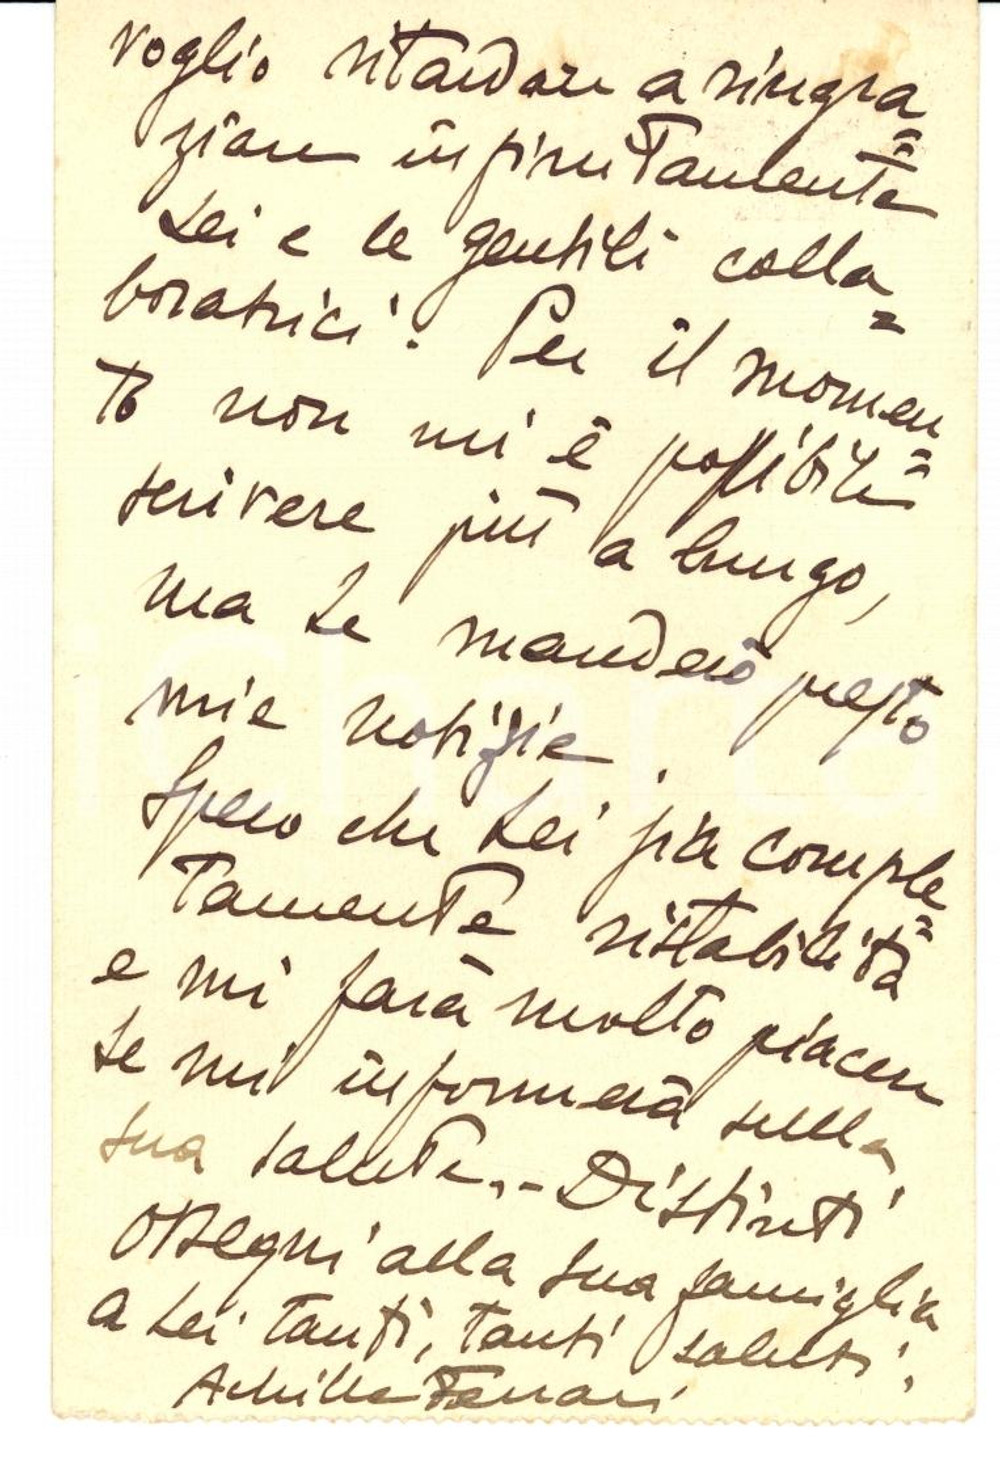 voglio ritardare a ringra=
ziare infinitamente
Lei e le gentili colla=
boratrici. Per il momen=
to non mi è possibile
scrivere più a lungo,
ma Le manderò presto
mie notizie.
Spero che Lei sia comple=
tamente ristabilita
e mi farà molto piacere
se mi informerà sulla
sua salute.- Distinti
ossequi alla sua famiglia
a Lei tanti, tanti saluti.
Achille Ferrari